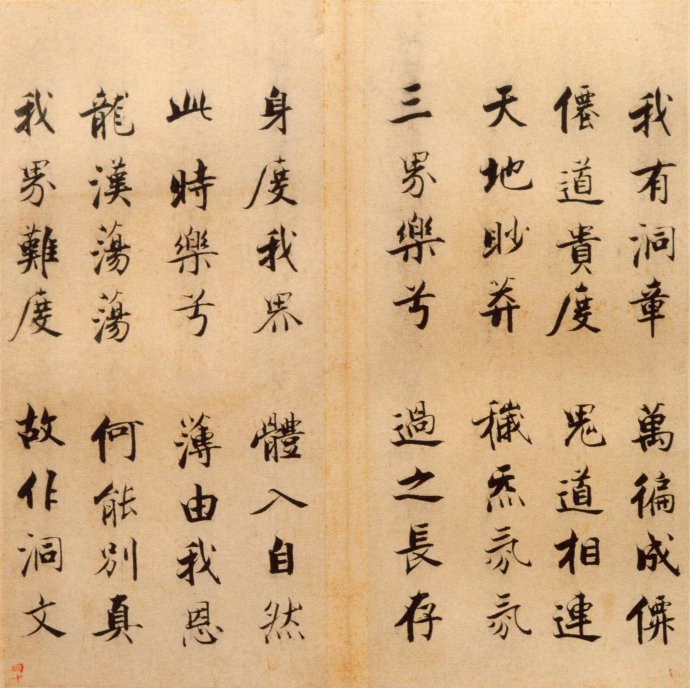 我有洞章 萬徧成僊
僊道貴度 鬼道相連
天地眇莽 穢炁氛氛
三界樂兮 過之長存
身度我界 體入自然
此時樂兮 薄由我恩
龍漢蕩蕩 何能別真
我界難度 故作洞文
四十